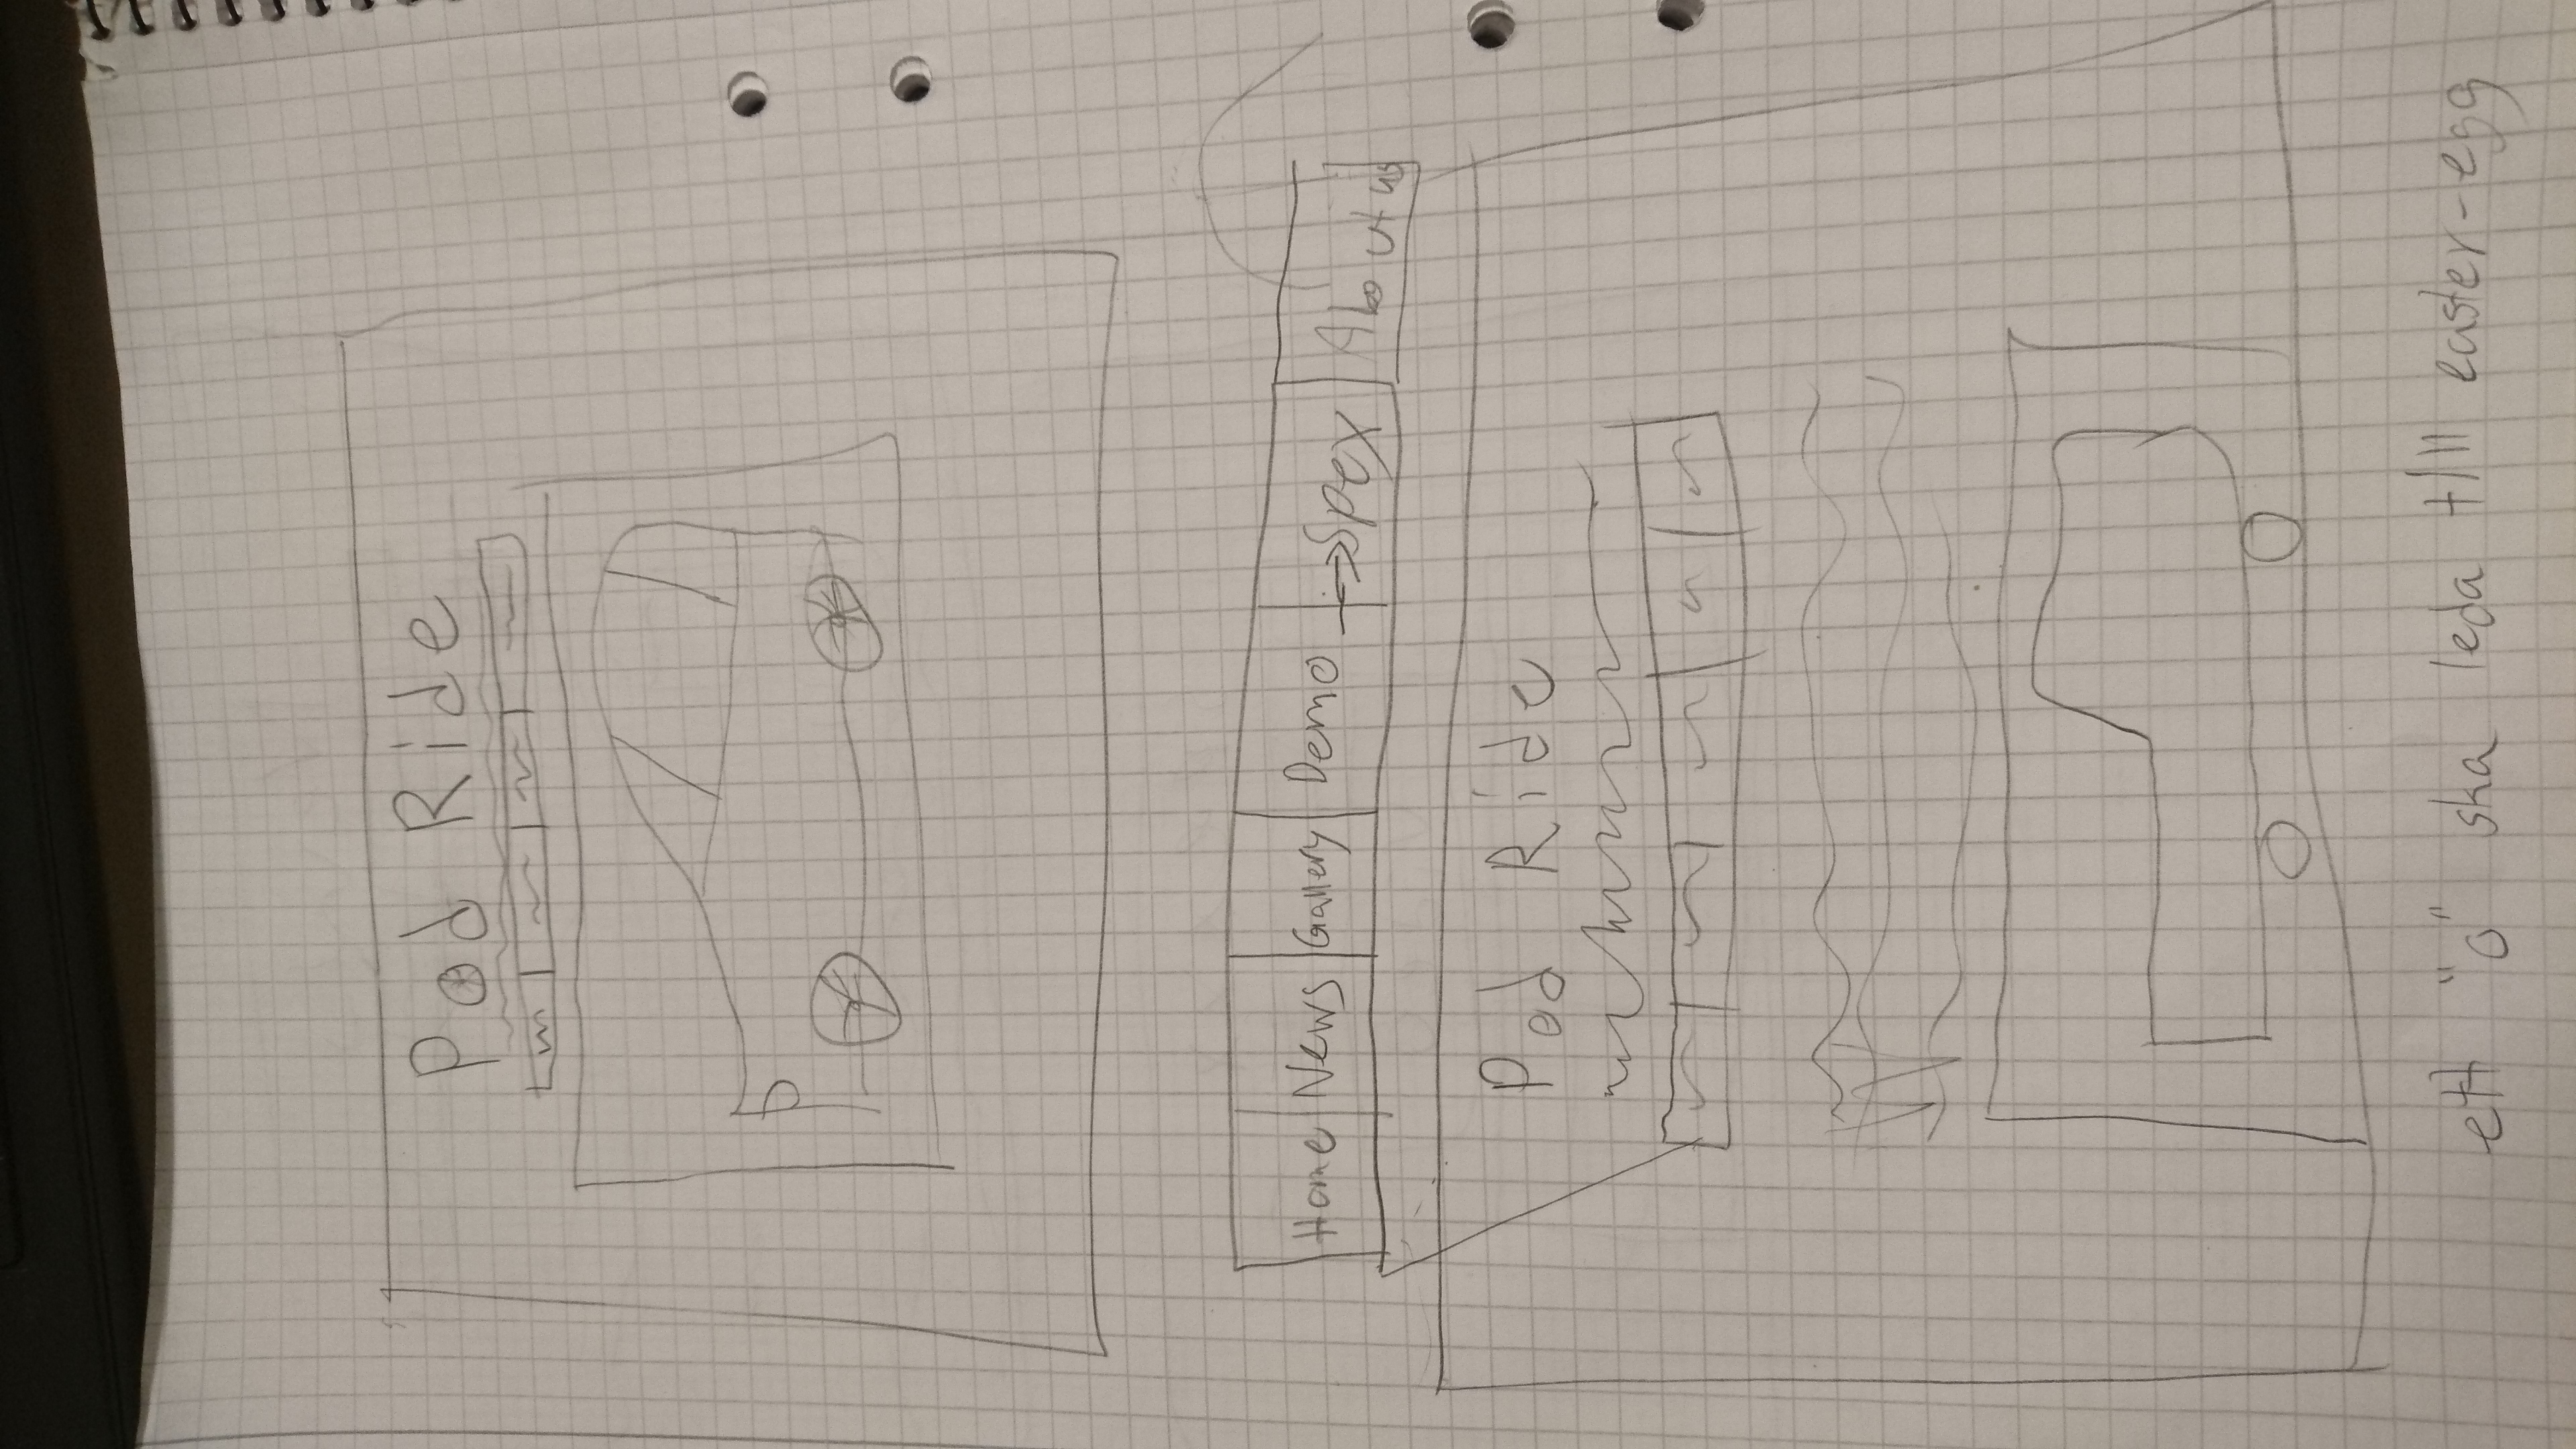 Pod Ride
Home News Gallery Demo →Spex About us
Pod Ride
ett "o" ska leda till easter-egg